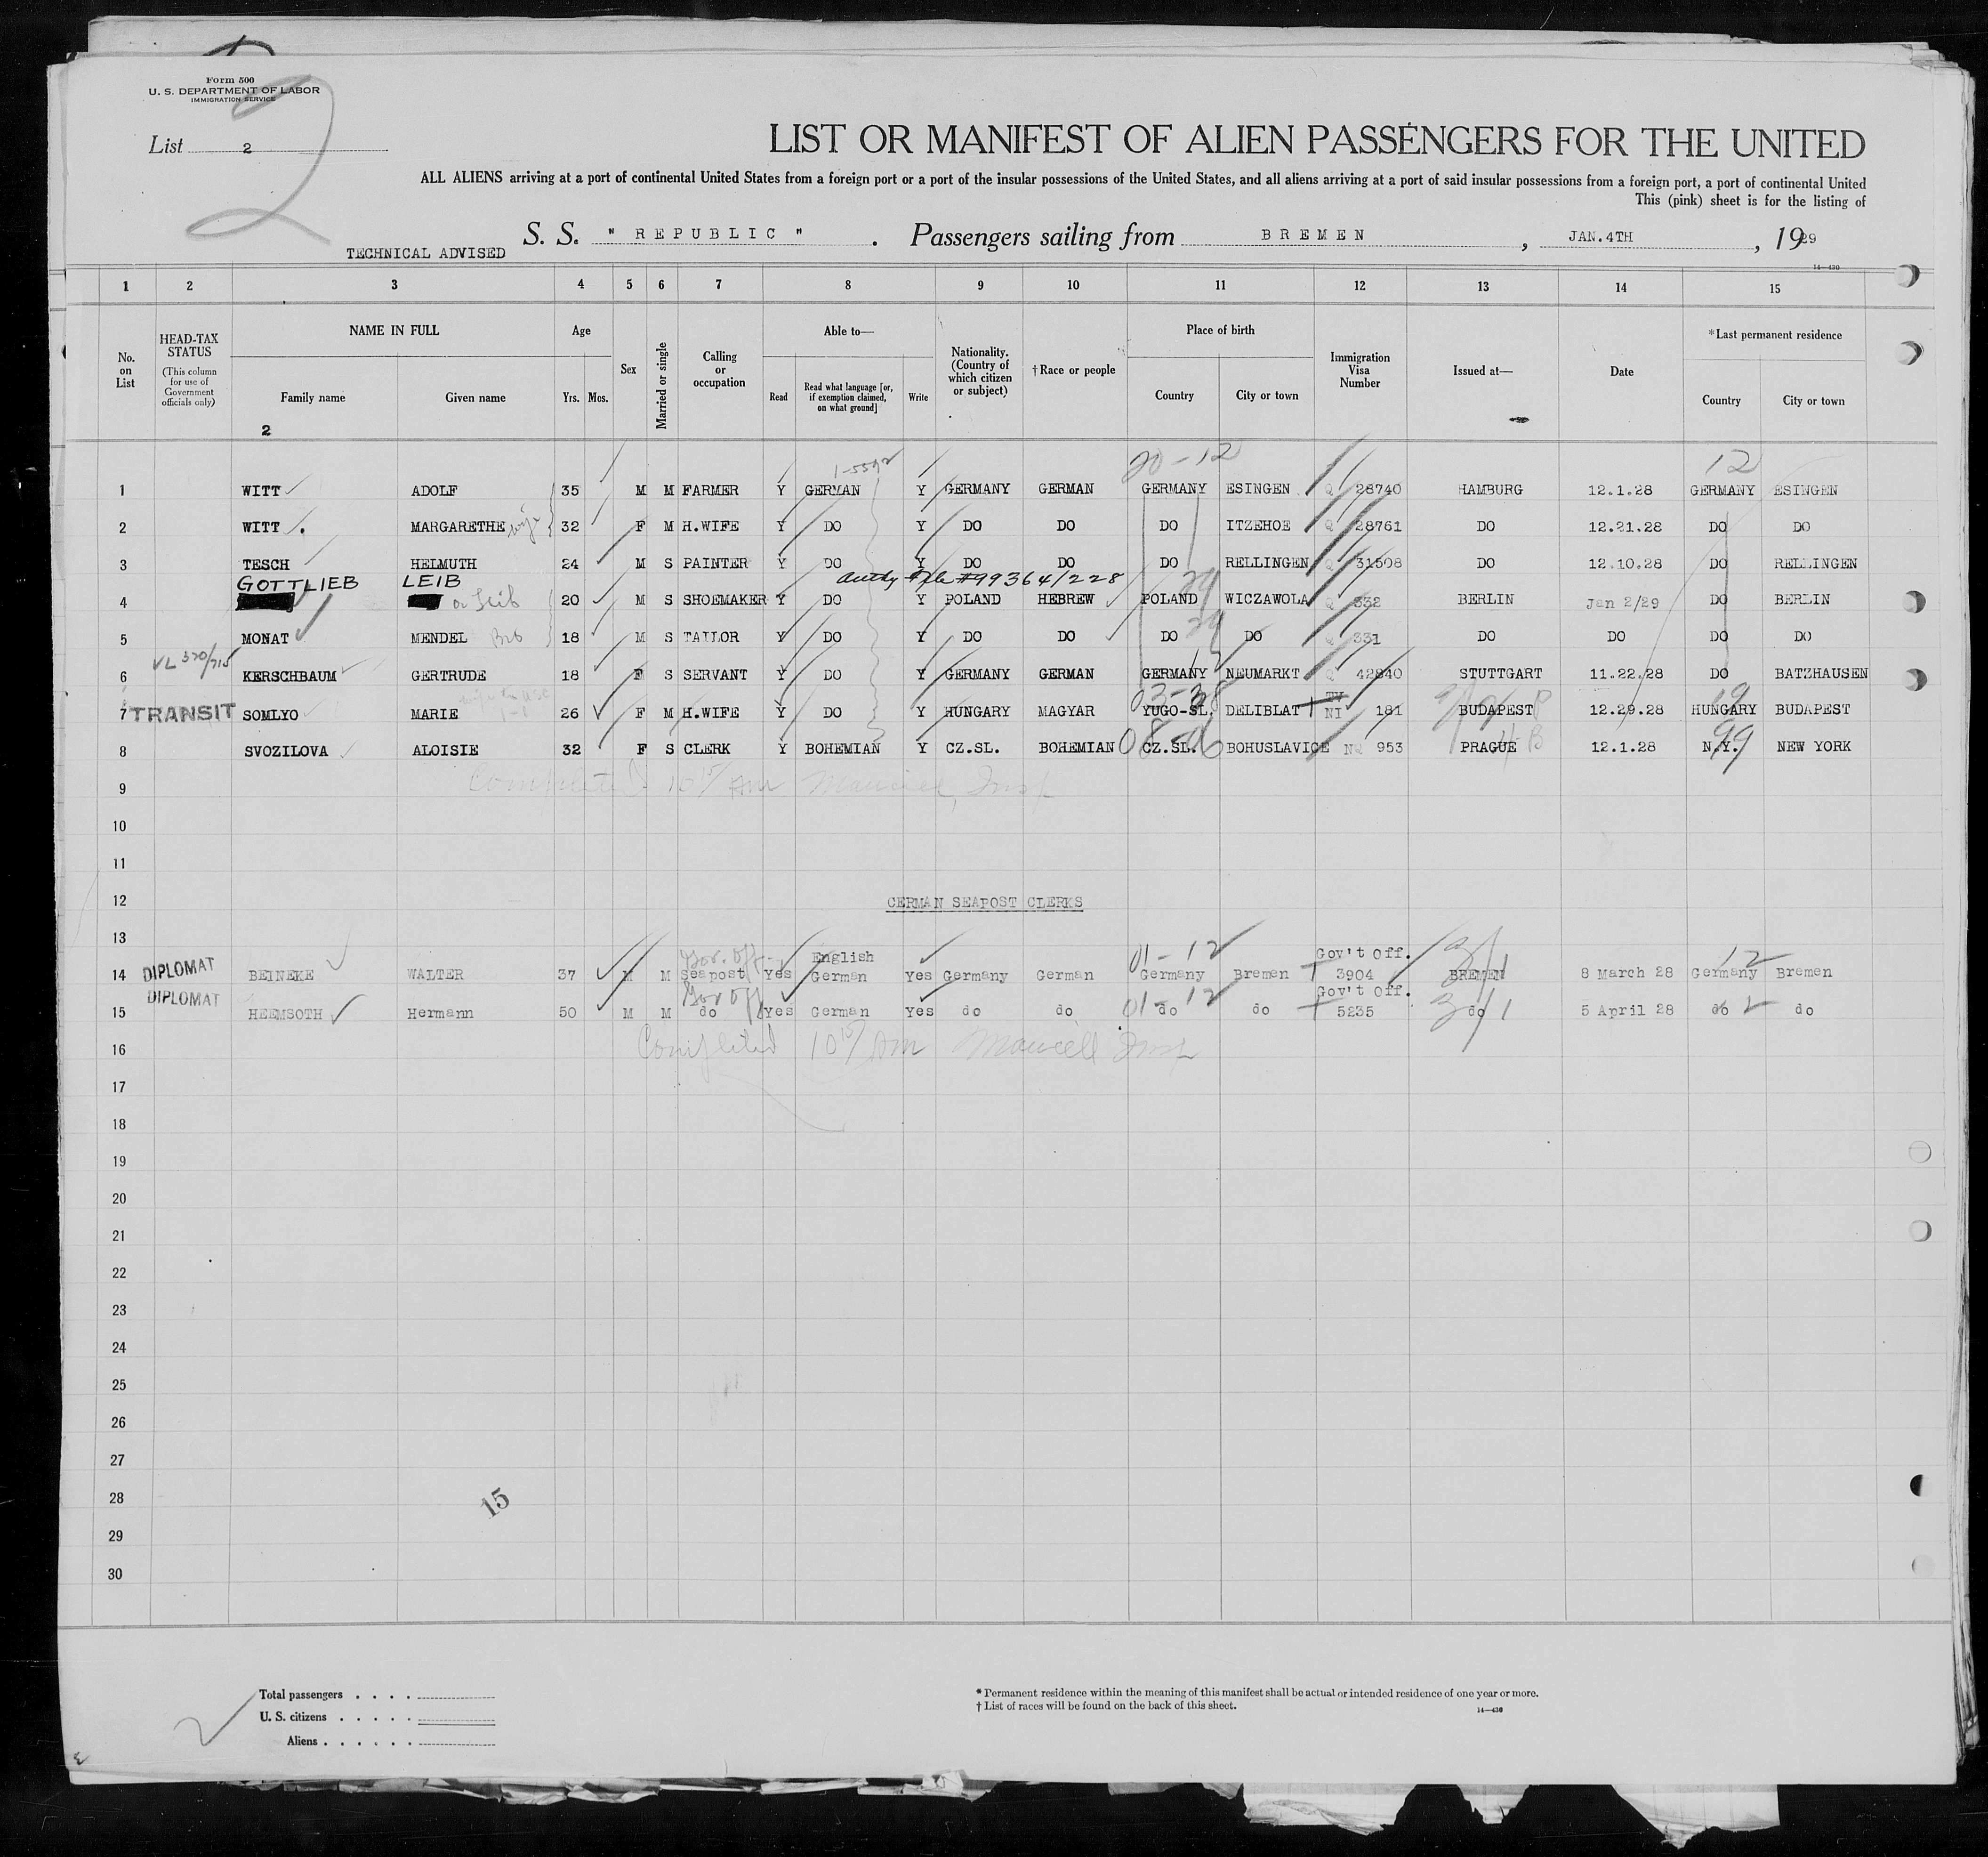 Form 500
U. S. DEPARTMENT OF LABOR
IMMIGRATION SERVICE
List 2
2
LIST OR MANIFEST OF ALIEN PASSENGERS FOR THE UNITED
ALL ALIENS arriving at a port of continental United States from a foreign port or a port of the insular possessions of the United States, and all aliens arriving at a port of said insular possessions from a foreign port, a port of continental United
This (pink) sheet is for the listing of
S. S. " REPUBLIC " . Passengers sailing from BREMEN , JAN.4TH , 1929
TECHNICAL ADVISED
14—430
1 2 3 4 5 6 7 8 9 10 11 12 13 14 15
No. on List
HEAD-TAX STATUS
(This column for use of Government officials only)
NAME IN FULL
Family name
Given name
Age
Yrs. Mos.
Sex
Married or single
Calling or occupation
Able to—
Read
Read what language [or, if exemption claimed, on what ground]
Write
Nationality. (Country of which citizen or subject)
†Race or people
Place of birth
Country
City or town
Immigration Visa Number
Issued at—
Date
*Last permanent residence
Country
City or town
2
1-5592 20-12 12
1 WITT ADOLF 35 M M FARMER Y GERMAN Y GERMANY GERMAN GERMANY ESINGEN Q 28740 HAMBURG 12.1.28 GERMANY ESINGEN
2 WITT MARGARETHE wife 32 F M H.WIFE Y DO Y DO DO DO ITZEHOE Q 28761 DO 12.21.28 DO DO
3 TESCH HELMUTH 24 M S PAINTER Y DO Y DO DO DO RELLINGEN Q 31508 DO 12.10.28 DO RELLINGEN
GOTTLIEB LEIB #99364/228
4 or Leib 20 M S SHOEMAKER Y DO Y POLAND HEBREW POLAND WICZAWOLA Q 332 BERLIN Jan 2/29 DO BERLIN
5 MONAT MENDEL Bro 18 M S TAILOR Y DO Y DO DO DO DO Q 331 DO DO DO DO
VL 370/715
6 KERSCHBAUM GERTRUDE 18 F S SERVANT Y DO Y GERMANY GERMAN GERMANY NEUMARKT Q 42840 STUTTGART 11.22.28 DO BATZHAUSEN
7 TRANSIT SOMLYO MARIE 26 F M H.WIFE Y DO Y HUNGARY MAGYAR YUGO-SL. DELIBLAT NI 181 BUDAPEST 12.29.28 HUNGARY BUDAPEST
8 SVOZILOVA ALOISIE 32 F S CLERK Y BOHEMIAN Y CZ.SL. BOHEMIAN CZ.SL. BOHUSLAVICE NQ 953 PRAGUE 12.1.28 N.Y. NEW YORK
9 Completed 10 15/ AM
10
11
12 GERMAN SEAPOST CLERKS
13
Gov. off. English 01-12 Gov't Off. 12
14 DIPLOMAT BEINEKE WALTER 37 M M Seapost Yes German Yes Germany German Germany Bremen 3904 BREMEN 8 March 28 Germany Bremen
Gov off 01-12 Gov't Off.
15 DIPLOMAT HEEMSOTH Hermann 50 M M do Yes German Yes do do do do 5235 do 5 April 28 do do
16 Completed 10 15/ AM
17
18
19
20
21
22
23
24
25
26
27
28
15
29
30
Total passengers . . . .
U. S. citizens . . . . .
Aliens . . . . . .
* Permanent residence within the meaning of this manifest shall be actual or intended residence of one year or more.
† List of races will be found on the back of this sheet.
14—430